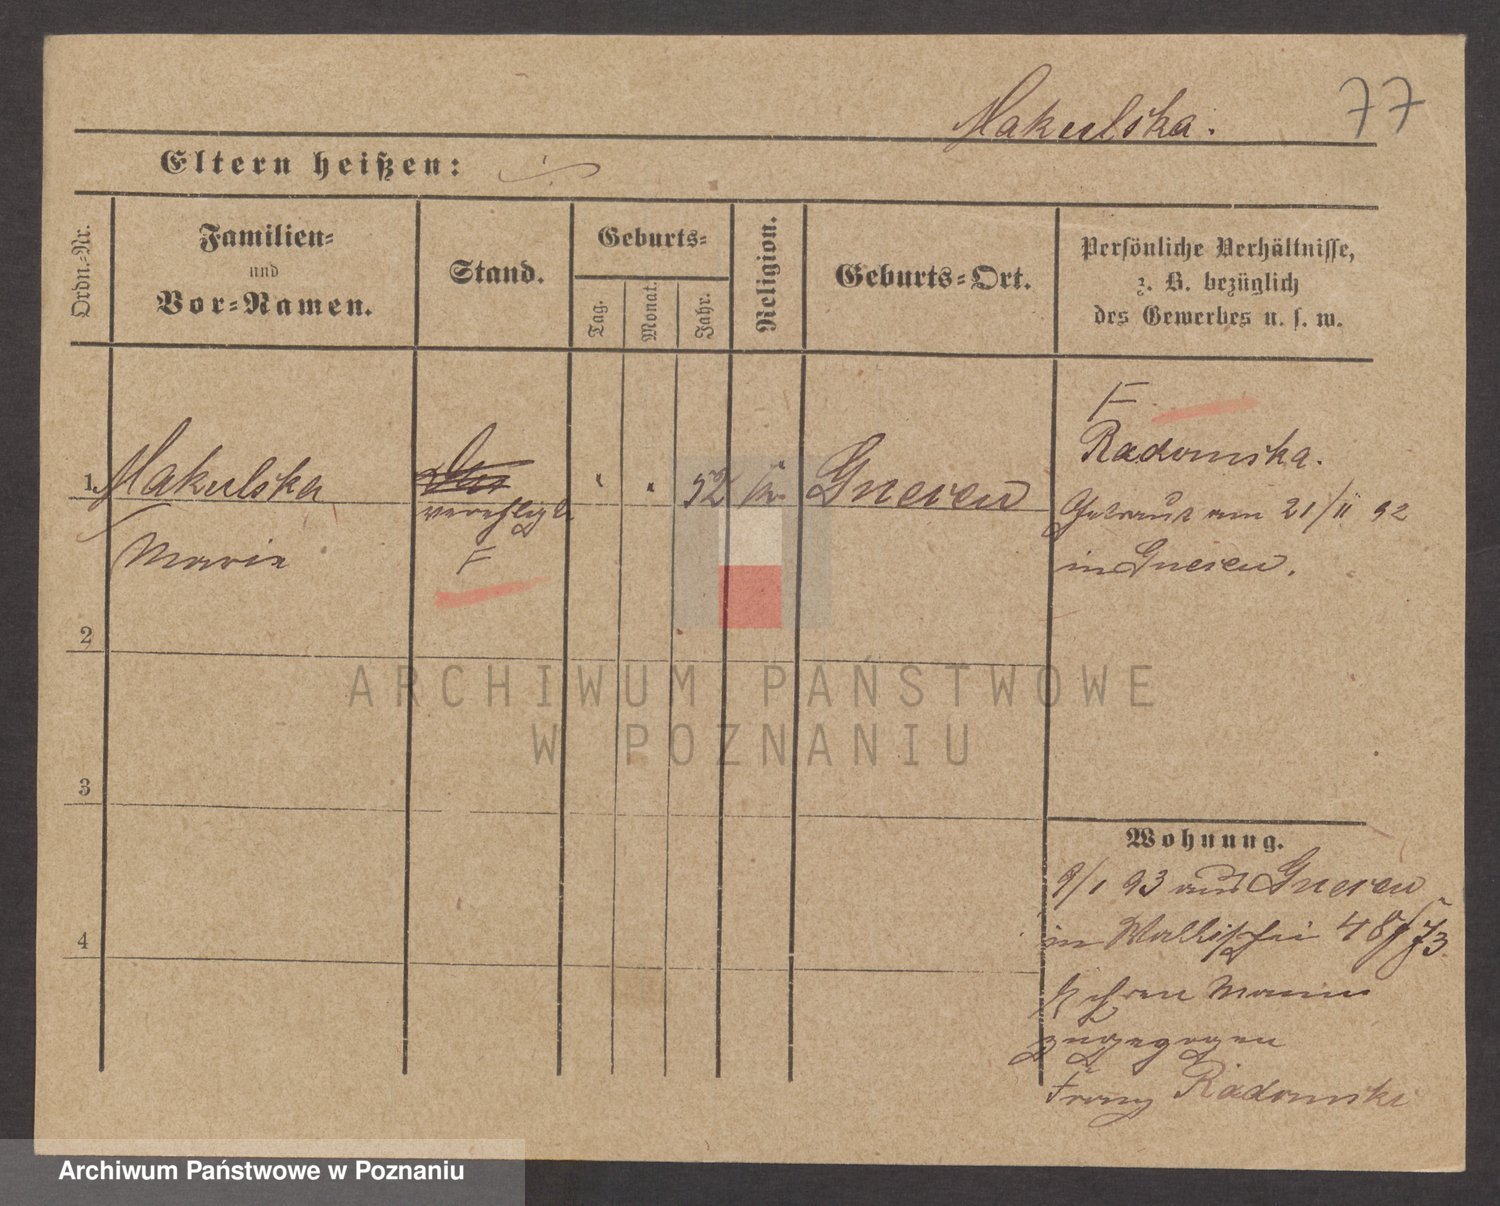 Makulska.
77
Eltern heißen:
Ordn.-Nr.
Familien-
und
Vor-Namen.
Stand.
Geburts-
Tag.
Monat.
Jahr.
Religion.
Geburts-Ort.
Persönliche Verhältnisse,
z. B. bezüglich
des Gewerbes u. s. w.
1
Makulska
Marie
verehligte
F
52
Gnesen
F
Radomska.
Getraut am 21/II 92
in Gnesen.
2
3
4
Wohnung.
9/1 93 aus Gnesen
in Wallischei
ihren Mann
zugezogen
Franz Radomski
ARCHIWUM PAŃSTWOWE
W POZNANIU
Archiwum Państwowe w Poznaniu